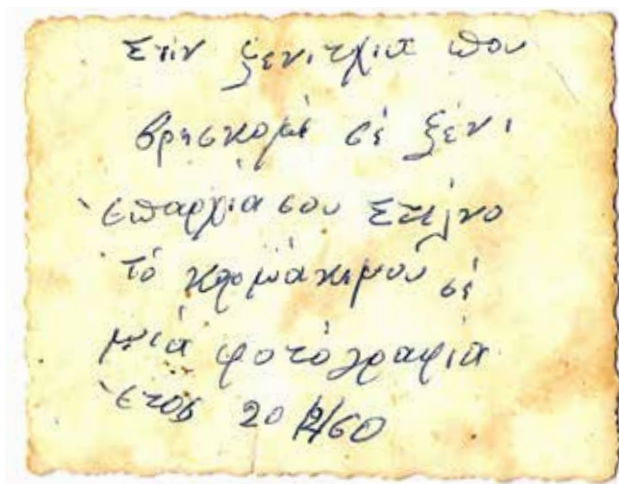 Στήν ξενιτχιά που
βρησκομέ σέ ξένι
επαρχία σου Στέλνο
τό κορμάκιμου σέ
μιά φοτογραφία
έτος 20 /60